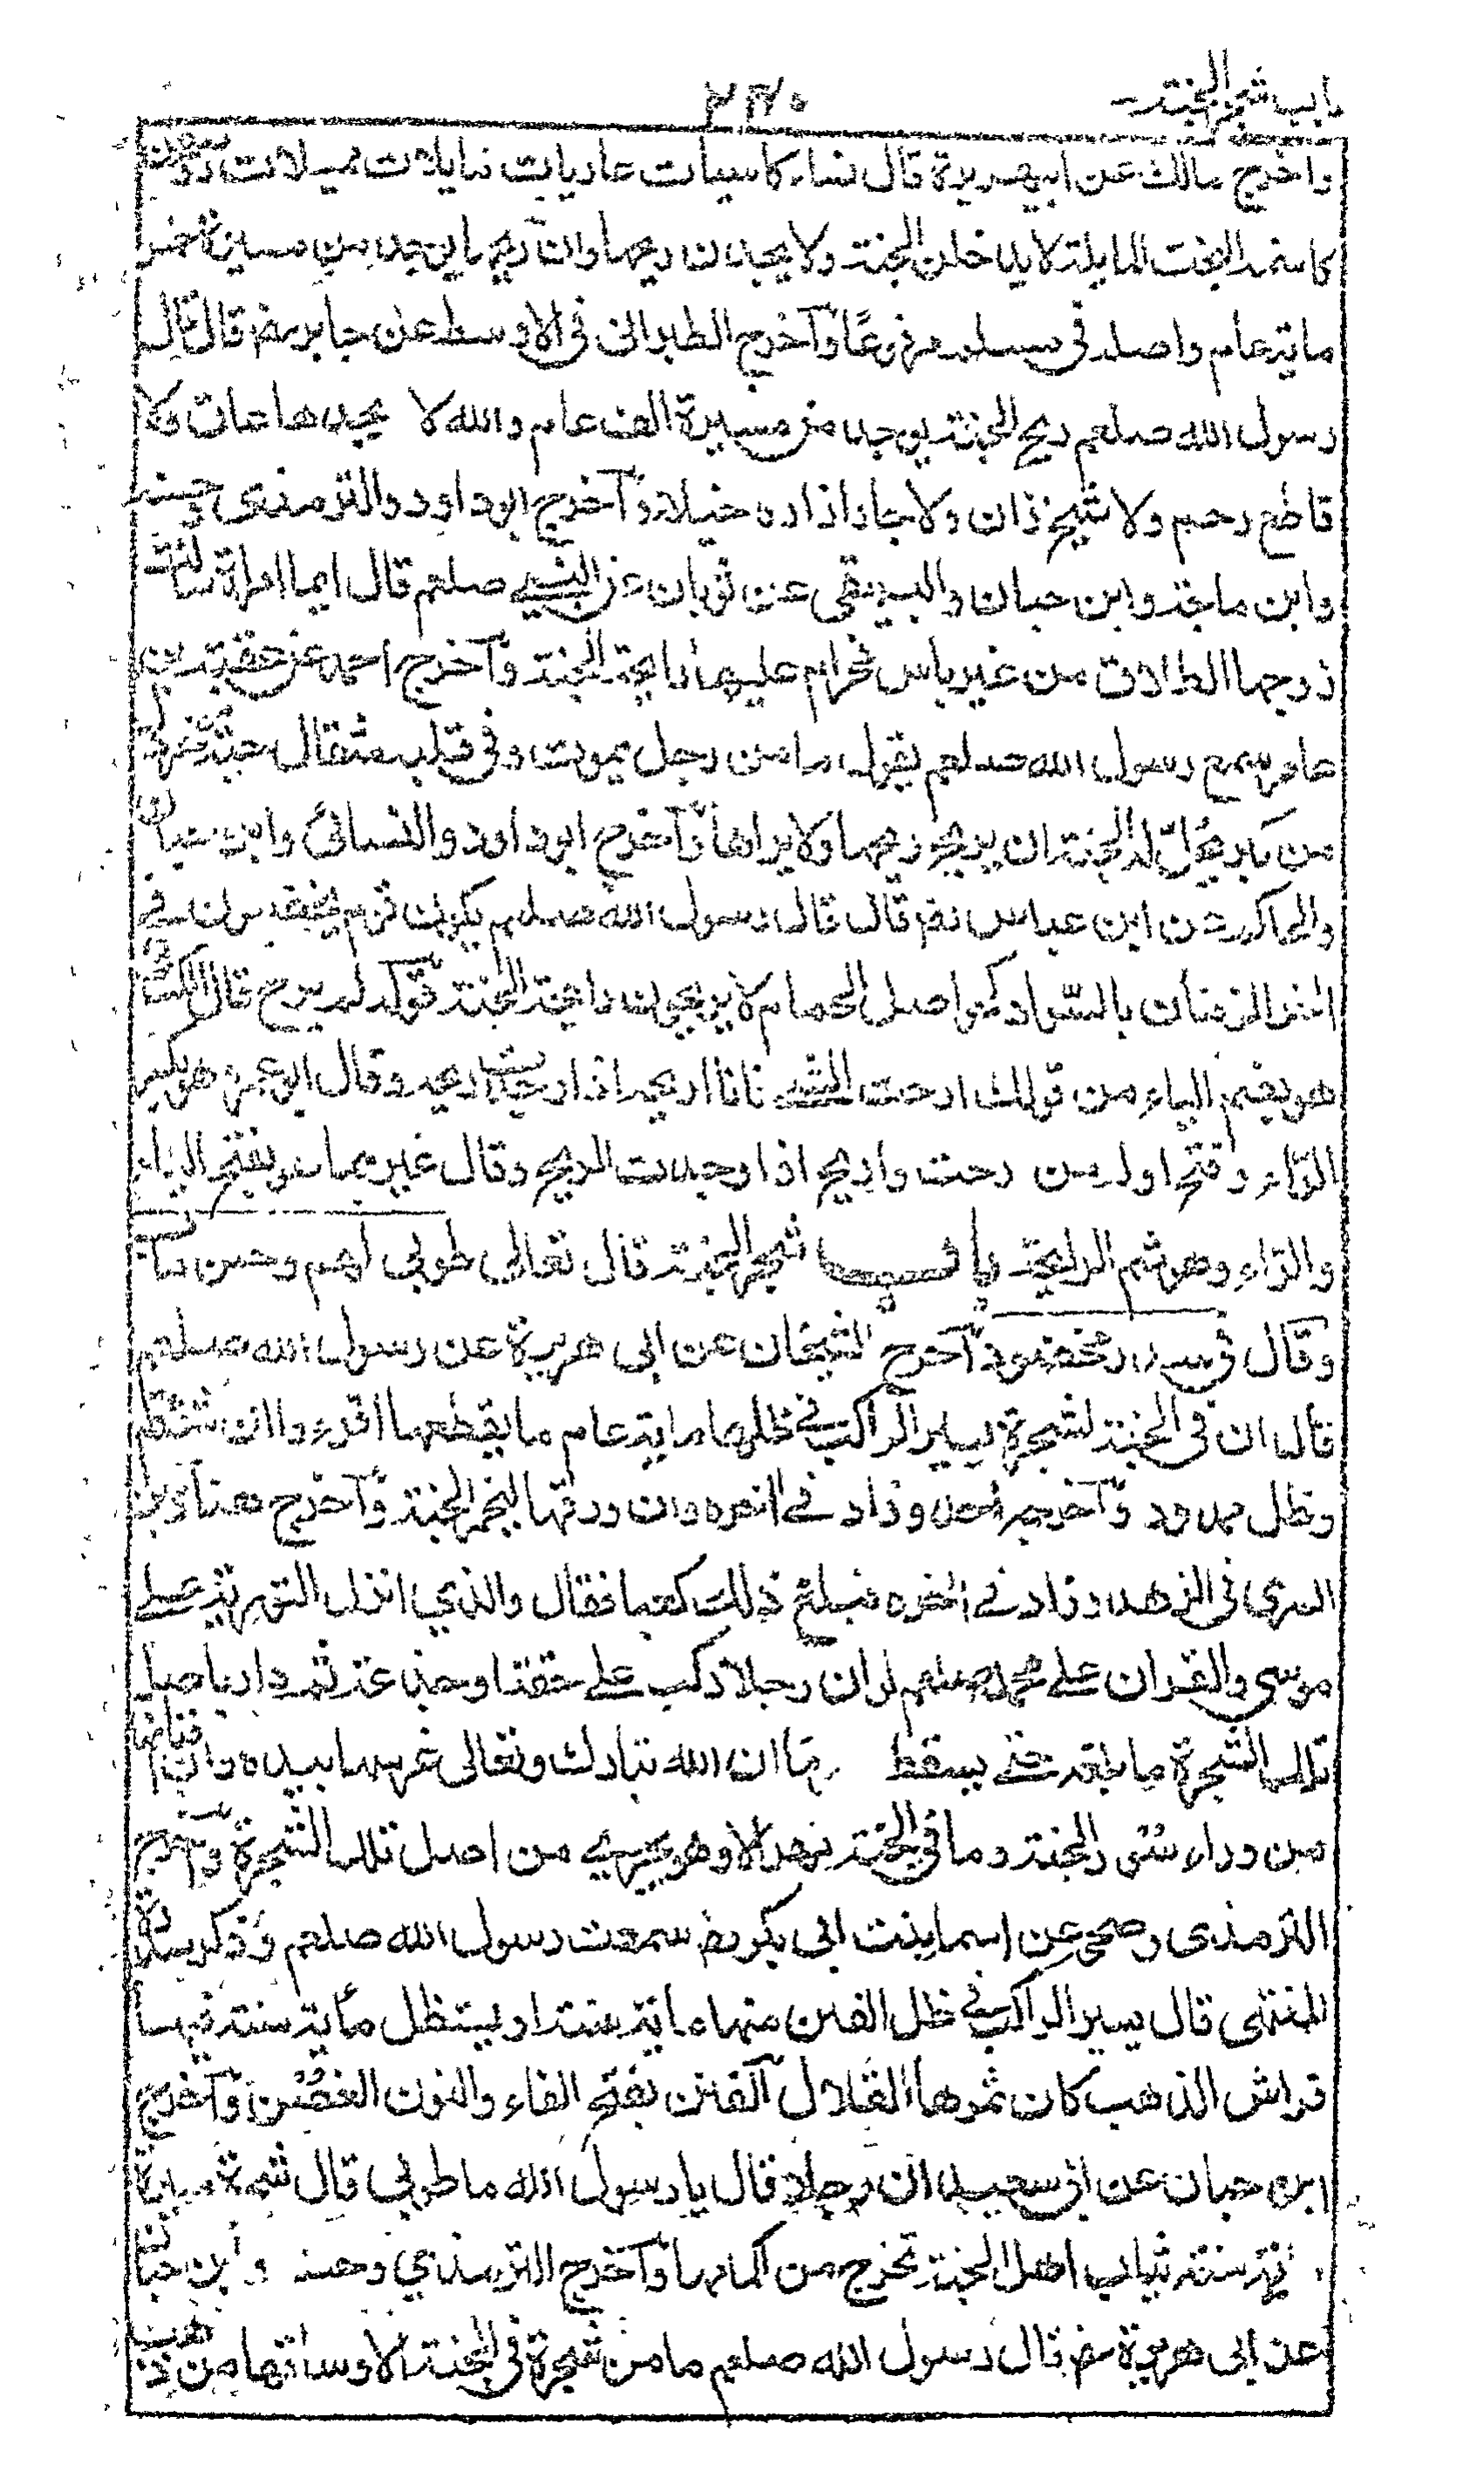 باب شجر الجنة
٢٣٠
واخرج مالك عن ابي هريرة قال نساء كاسيات عاريات مايلات مميلات رؤسهن
كاسنمة البخت المايلة لا يدخلن الجنة ولا يجدن ريحها وان ريحها يوجد من مسيرة خمس
ماية عام واصله في مسلم مرفوعًا وآخرج الطبراني في الاوسط عن جابر رضـ قال قال
رسول الله صلعم ريح الجنة يوجد من مسيرة الف عام والله لا يجدها عاق ولا
قاطع رحم ولا شيخ زان ولا جار ازاره خيلاء وآخرج ابوداود والترمذي وحسنه
وابن ماجة وابن حبان والبيهقي عن ثوبان عن النبي صلعم قال ايما امراة سالت
زوجها الطلاق من غير باس فحرام عليها رايحة الجنة وآخرج احمد عن عقبة بن
عامر سمع رسول الله صلعم يقول ما من رجل يموت وفي قلبه مثقال حبة خردل
من كبر يحل له الجنة ان يريح ريحها ولا يراها وآخرج ابوداود والنسائي وابن حبان
والحاكم عن ابن عباس رضـ قال قال رسول الله صلعم يكون قوم يخضبون في
اخر الزمان بالسواد كحواصل الحمام لا يريحون رايحة الجنة قوله لم يرح قال الكسائي
هو بضم الياء من قولك ارحت الشيء فانا اريحه اذا وجدت ريحه وقال ابو عمرو هو بكسر
الراء وفتح اوله من رحت واريح اذا وجدت الريح وقال غيرهما هو بفتح الياء
والراء وهو شم الرايحة باب شجر الجنة قال تعالى طوبى لهم وحسن مآب
وقال في سدر مخضود آخرج الشيخان عن ابي هريرة عن رسول الله صلعم
قال ان في الجنة لشجرة يسير الراكب في ظلها ماية عام ما يقطعها اقرءوا ان شئتم
وظل ممدود وآخرجه احمد وزاد في اخره وان ورقها ليخمر الجنة وآخرج هناد بن
السري في الزهد وزاد في اخره فبلغ ذلك كعبا فقال والذي انزل التورية على
موسى والقران على محمد صلعم لو ان رجلا ركب على حقة او جذعة ثم دار باصل
تلك الشجرة ما بلغه حتى يسقط هرما ان الله تبارك وتعالى غرسها بيده وان افنانها
من وراء سور الجنة وما في الجنة نهر الا وهو يجري من اصل تلك الشجرة وآخرج
الترمذي وصححه عن اسما بنت ابي بكر رضـ سمعت رسول الله صلعم وذكر سدرة
المنتهى قال يسير الراكب في ظل الفنن منها ماية سنة او يستظل مأية سنة فيها
فراش الذهب كان ثمرها القلال الفنن بفتح الفاء والنون الغصن وآخرج
ابن حبان عن ابي سعيد ان رجلا قال يا رسول الله ما طوبى قال شجرة مسيرة
مأية سنة ثياب اهل الجنة تخرج من اكمامها وآخرج الترمذي وحسنه وابن حبان
عن ابي هريرة رضـ قال رسول الله صلعم ما من شجرة في الجنة الا وساقها من ذهب